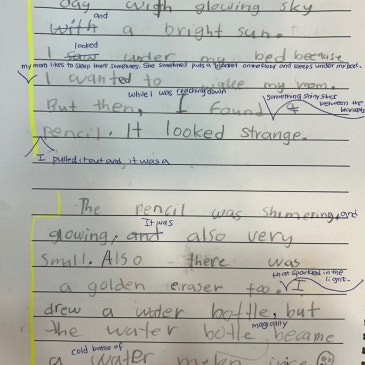 day with glowing sky
and
with a bright sun.
looked
I saw under my bed because
my mom likes to sleep there sometimes. She sometimes puts a blanket and sleeps under my bed.
I wanted to wake my mom.
while I was reaching down
something shiny stuck between the blankets
But then, I found a
pencil. It looked strange.
I pulled it out and it was a
The pencil was shimering, and
It was
glowing, and also very
small. Also there was
that sparkled in the light.
a golden eraser too. I
drew a water bottle, but
magically
the water bottle became
cold bottle of
a water melon juice